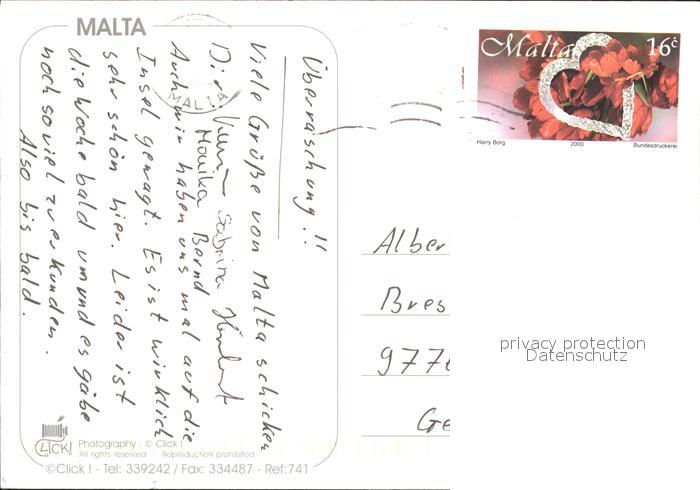 MALTA
Überraschung!!
Viele Grüße von Malta schicken
Dir
Sabrina
Monika Bernd
Auch wir haben uns mal auf die
Insel gewagt. Es ist wirklich
sehr schön hier. Leider ist
die Woche bald um und es gäbe
noch so viel zu erkunden.
Also bis bald.
MALTA
Malta 16c
Harry Borg 2000 Bundesdruckerei
Alber
Bres
977
Ge
privacy protection
Datenschutz
CLICK!
Photography : © Click !
All rights reserved - Reproduction prohibited
©Click ! - Tel: 339242 / Fax: 334487 - Ref:741